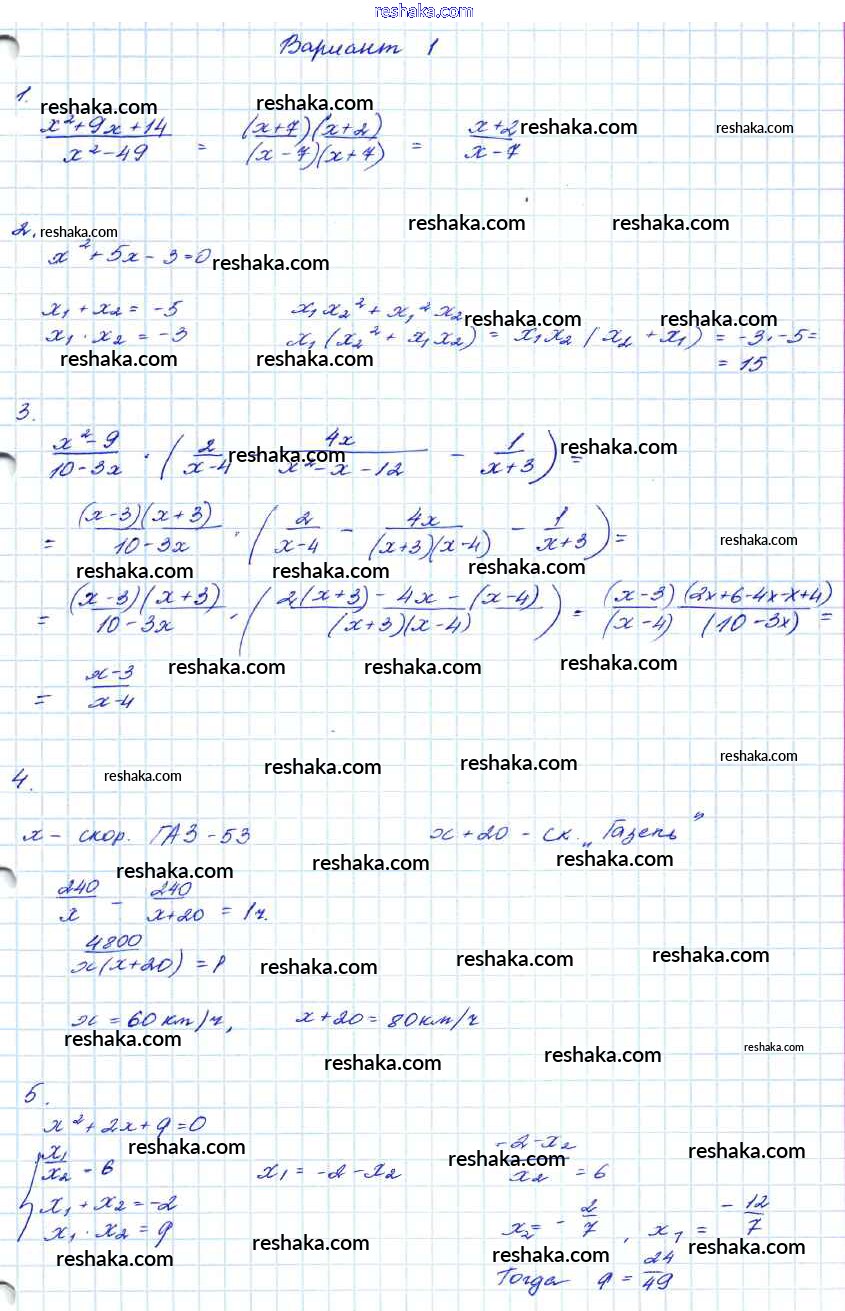 reshaka.com
Вариант 1
1.
reshaka.com reshaka.com
(x² + 9x + 14)/(x² - 49) = ((x+7)(x+2))/((x-7)(x+7)) = (x+2)/(x-7) reshaka.com reshaka.com
2. reshaka.com reshaka.com reshaka.com
x² + 5x - 3 = 0 reshaka.com
x₁ + x₂ = -5 x₁x₂² + x₁²x₂ reshaka.com reshaka.com
x₁ · x₂ = -3 x₁(x₂² + x₁x₂) = x₁x₂(x₂ + x₁) = -3 · -5 =
reshaka.com reshaka.com = 15
3.
(x² - 9)/(10 - 3x) · (2/(x-4) reshaka.com 4x/(x² - x - 12) - 1/(x+3)) = reshaka.com
= ((x-3)(x+3))/(10-3x) · (2/(x-4) - 4x/((x+3)(x-4)) - 1/(x+3)) = reshaka.com
reshaka.com reshaka.com reshaka.com
= ((x-3)(x+3))/(10-3x) · ((2(x+3) - 4x - (x-4))/((x+3)(x-4))) = ((x-3)(2x+6-4x-x+4))/((x-4)(10-3x)) =
= (x-3)/(x-4) reshaka.com reshaka.com reshaka.com
4. reshaka.com reshaka.com reshaka.com reshaka.com
x - скор. ГАЗ-53 x+20 - ск. „Газель"
reshaka.com reshaka.com reshaka.com
240/x - 240/(x+20) = 1ч.
4800/(x(x+20)) = 1 reshaka.com reshaka.com reshaka.com
x = 60 км/ч, x+20 = 80 км/ч
reshaka.com reshaka.com reshaka.com reshaka.com
5.
x² + 2x + q = 0
reshaka.com reshaka.com reshaka.com
{ x₁/x₂ = 6 x₁ = -2 - x₂ (-2-x₂)/x₂ = 6
x₁ + x₂ = -2
x₁ · x₂ = q x₂ = -2/7, x₁ = -12/7
reshaka.com reshaka.com reshaka.com reshaka.com
Тогда q = 24/49